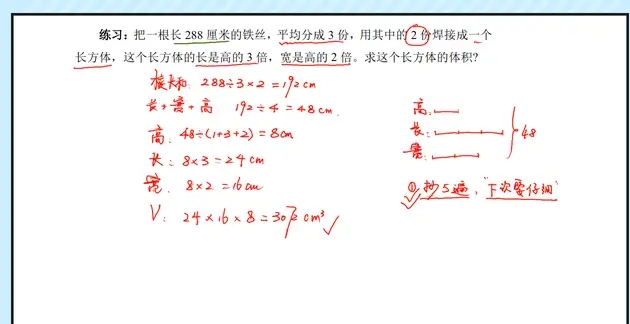 练习：把一根长 288 厘米的铁丝，平均分成 3 份，用其中的 2 份焊接成一个
长方体，这个长方体的长是高的 3 倍，宽是高的 2 倍。求这个长方体的体积？
棱长和: 288÷3×2=192cm
长+宽+高 192÷4=48cm.
高: 48÷(1+3+2)=8cm
长: 8×3=24cm
宽: 8×2=16cm
V: 24×16×8=3072cm³
高:
长:
宽:
48
① 抄5遍, "下次要仔细"